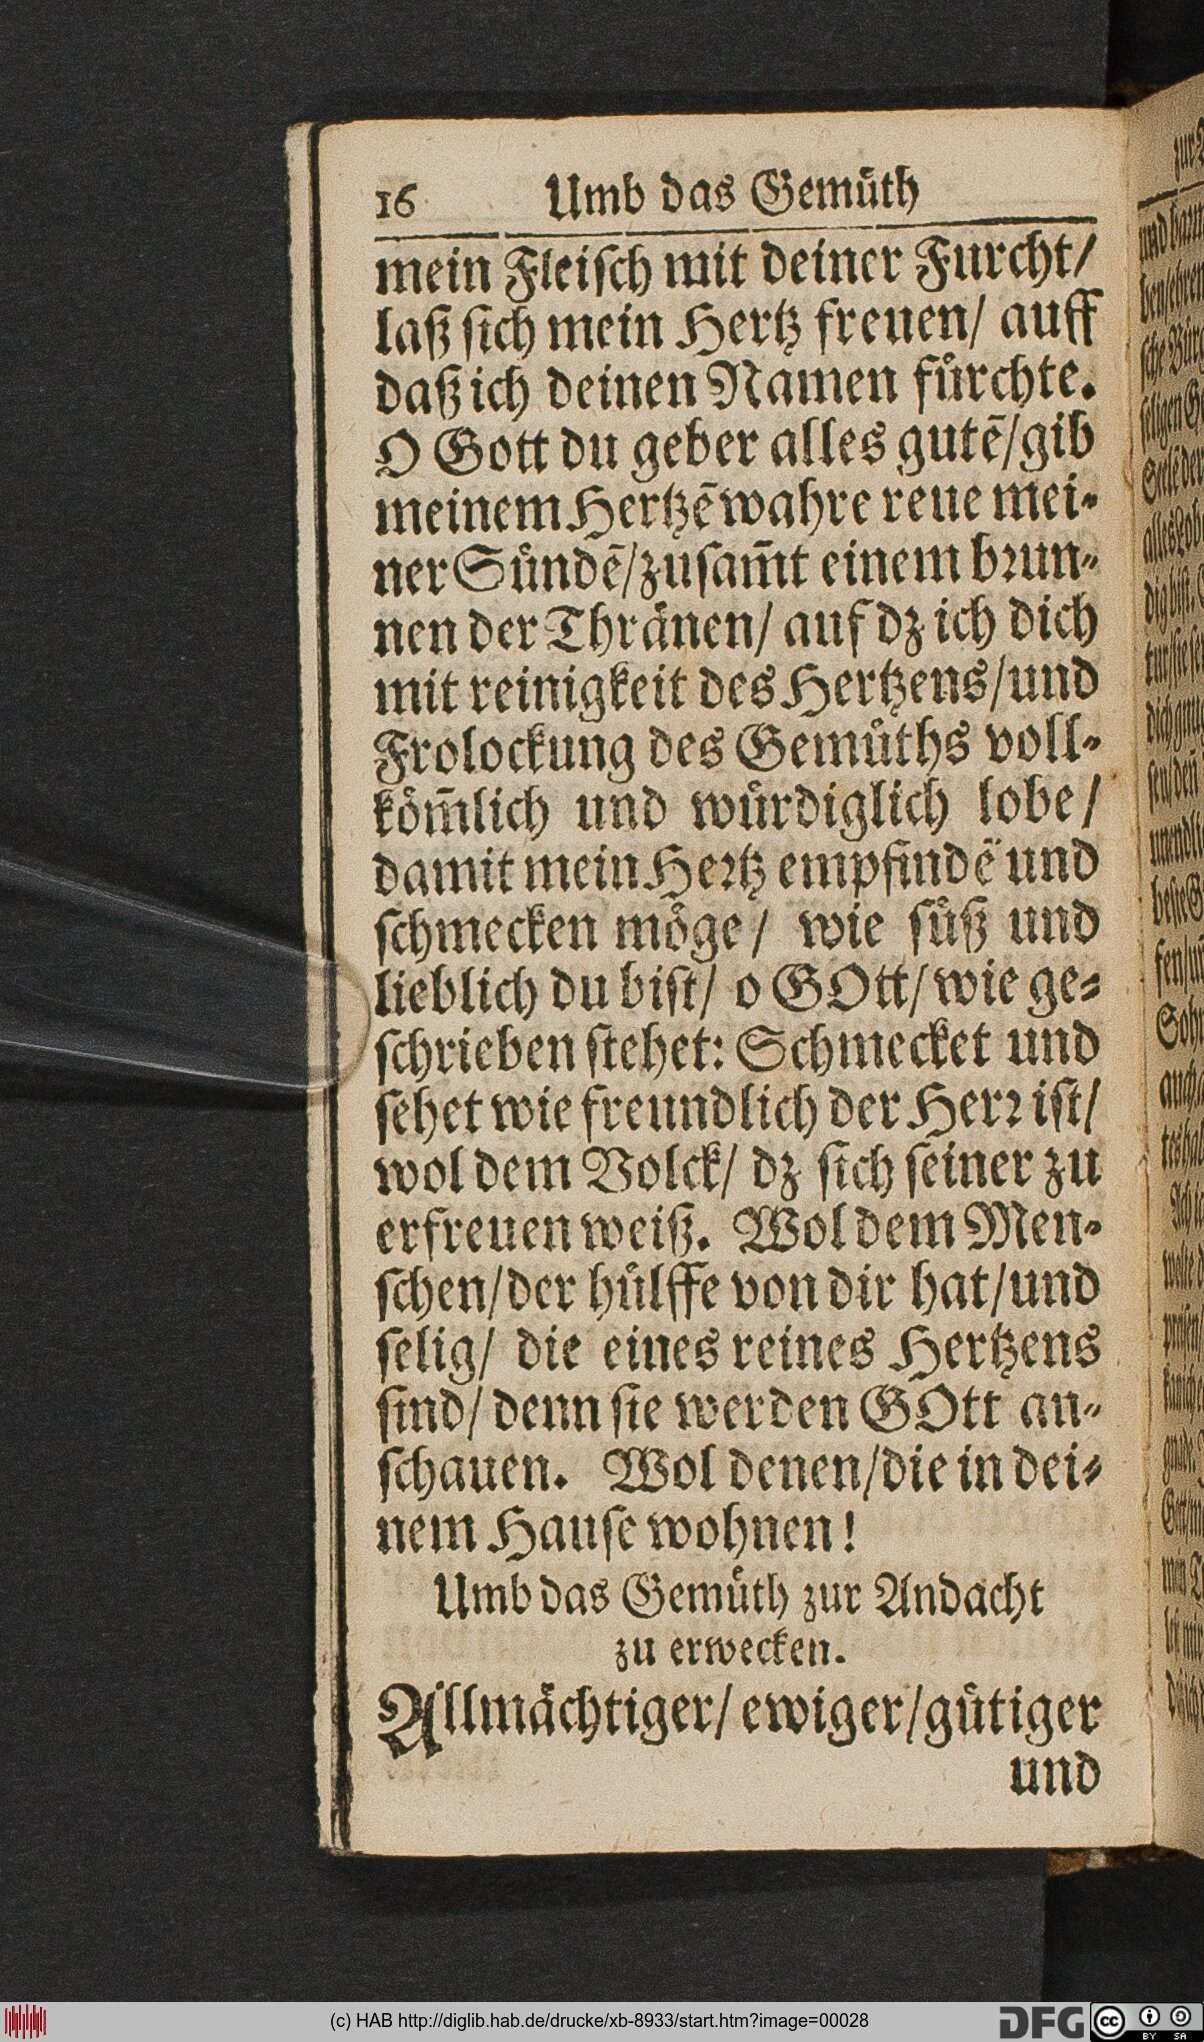 16 Umb das Gemuͤth
mein Fleiſch mit deiner Furcht/
laß ſich mein Hertz freuen/ auff
daß ich deinen Namen fuͤrchte.
O Gott du geber alles gutē/gib
meinem Hertzē wahre reue mei-
ner Suͤndē/zuſam̄t einem brun-
nen der Thraͤnen/ auf dz ich dich
mit reinigkeit des Hertzens/und
Frolockung des Gemuͤths voll-
koͤm̄lich und wuͤrdiglich lobe/
damit mein Hertz empfindē und
ſchmecken moͤge/ wie ſuͤß und
lieblich du biſt/ o GOtt/ wie ge-
ſchrieben ſtehet: Schmecket und
ſehet wie freundlich der Herꝛ iſt/
wol dem Volck/ dz ſich ſeiner zu
erfreuen weiß. Wol dem Men-
ſchen/der huͤlffe von dir hat/und
ſelig/ die eines reines Hertzens
ſind/ denn ſie werden GOtt an-
ſchauen. Wol denen/die in dei-
nem Hauſe wohnen!
Umb das Gemuͤth zur Andacht
zu erwecken.
Allmaͤchtiger/ ewiger/guͤtiger
und
(c) HAB http://diglib.hab.de/drucke/xb-8933/start.htm?image=00028
DFG
cc BY SA